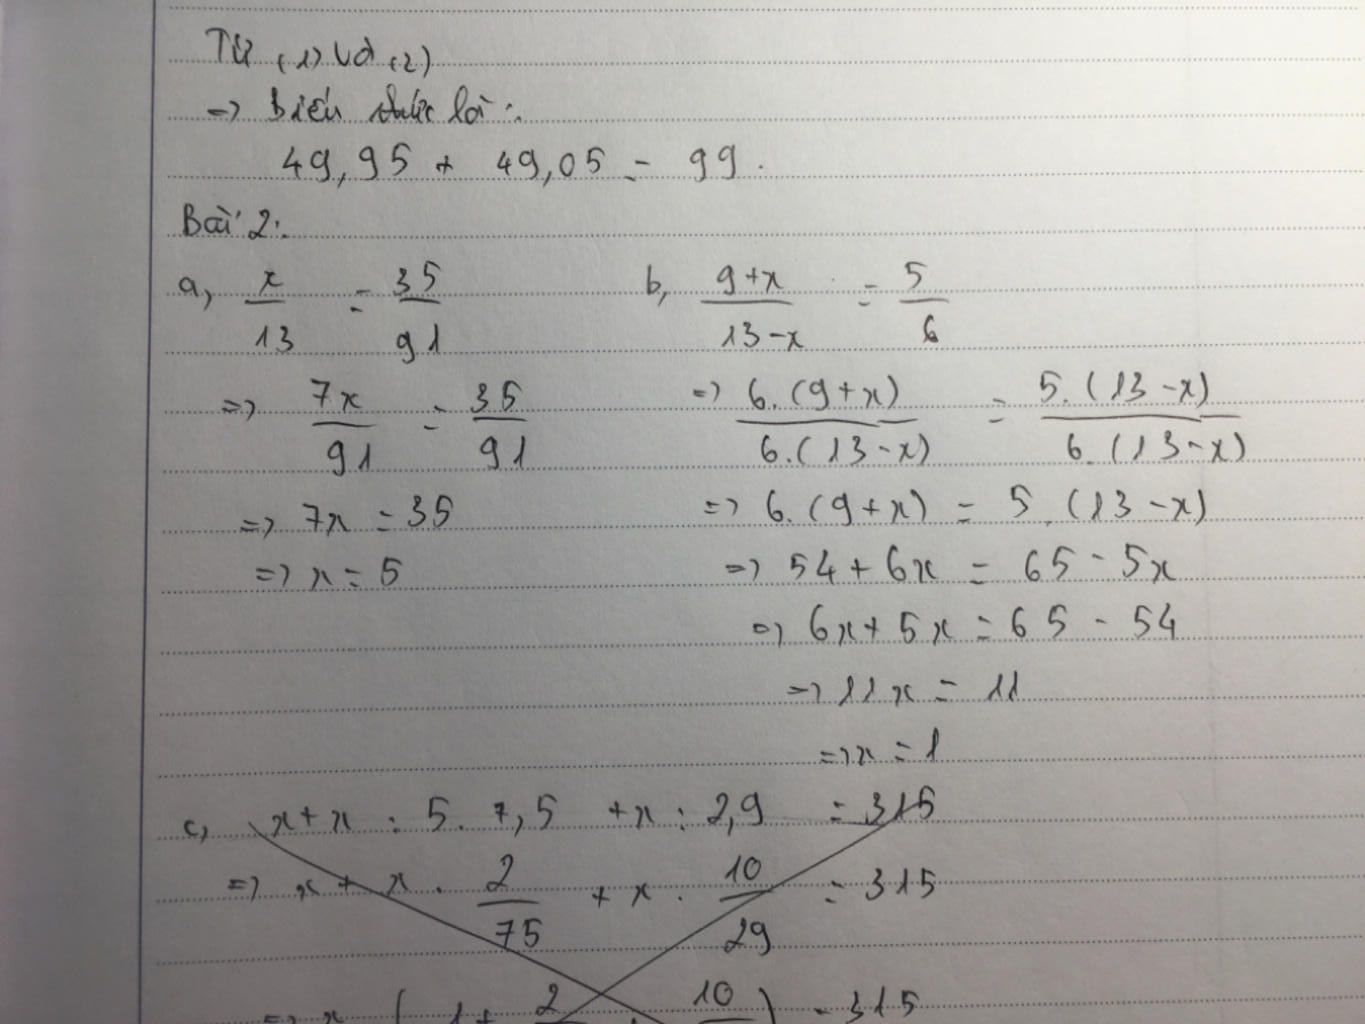 Từ (1) và (2)
=> Biểu thức là:
49,95 + 49,05 = 99.
Bài 2:
a, x/13 = 35/91
=> 7x/91 = 35/91
=> 7x = 35
=> x = 5
b, 9+x/13-x = 5/6
=> 6.(9+x)/6.(13-x) = 5.(13-x)/6.(13-x)
=> 6.(9+x) = 5.(13-x)
=> 54 + 6x = 65 - 5x
=> 6x + 5x = 65 - 54
=> 11x = 11
=> x = 1
c, x + x : 5. 7,5 + x : 2,9 = 315
=> x + x . 2/75 + x . 10/29 = 315
=> x ( 1 + 2 10 ) = 315